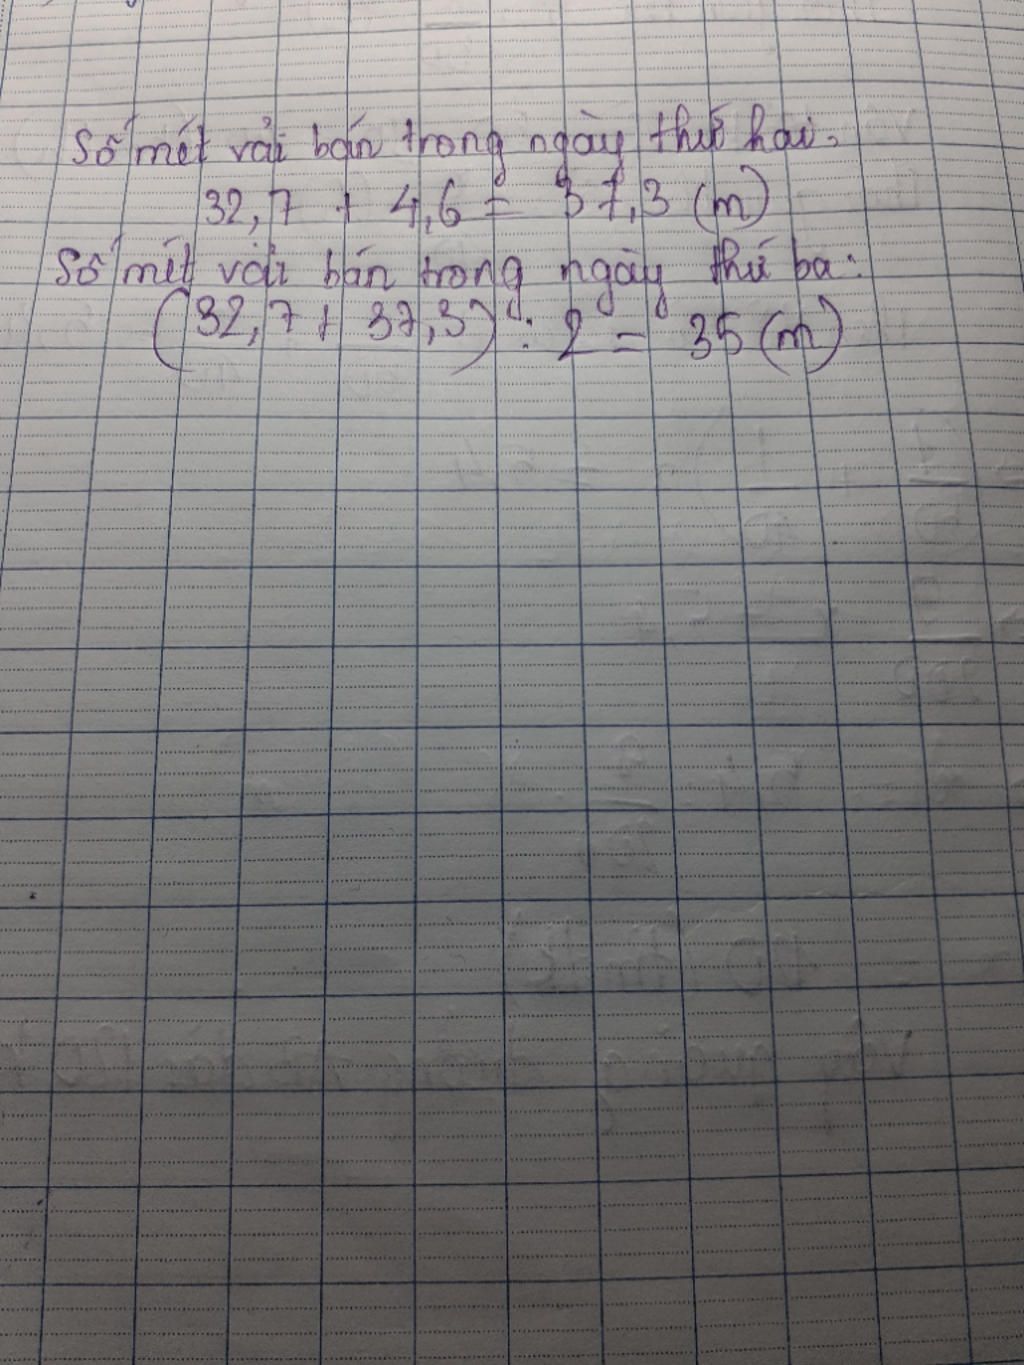 Số mét vải bán trong ngày thứ hai:
32,7 + 4,6 = 37,3 (m)
Số mét vải bán trong ngày thứ ba:
(32,7 + 37,3) : 2 = 35 (m)